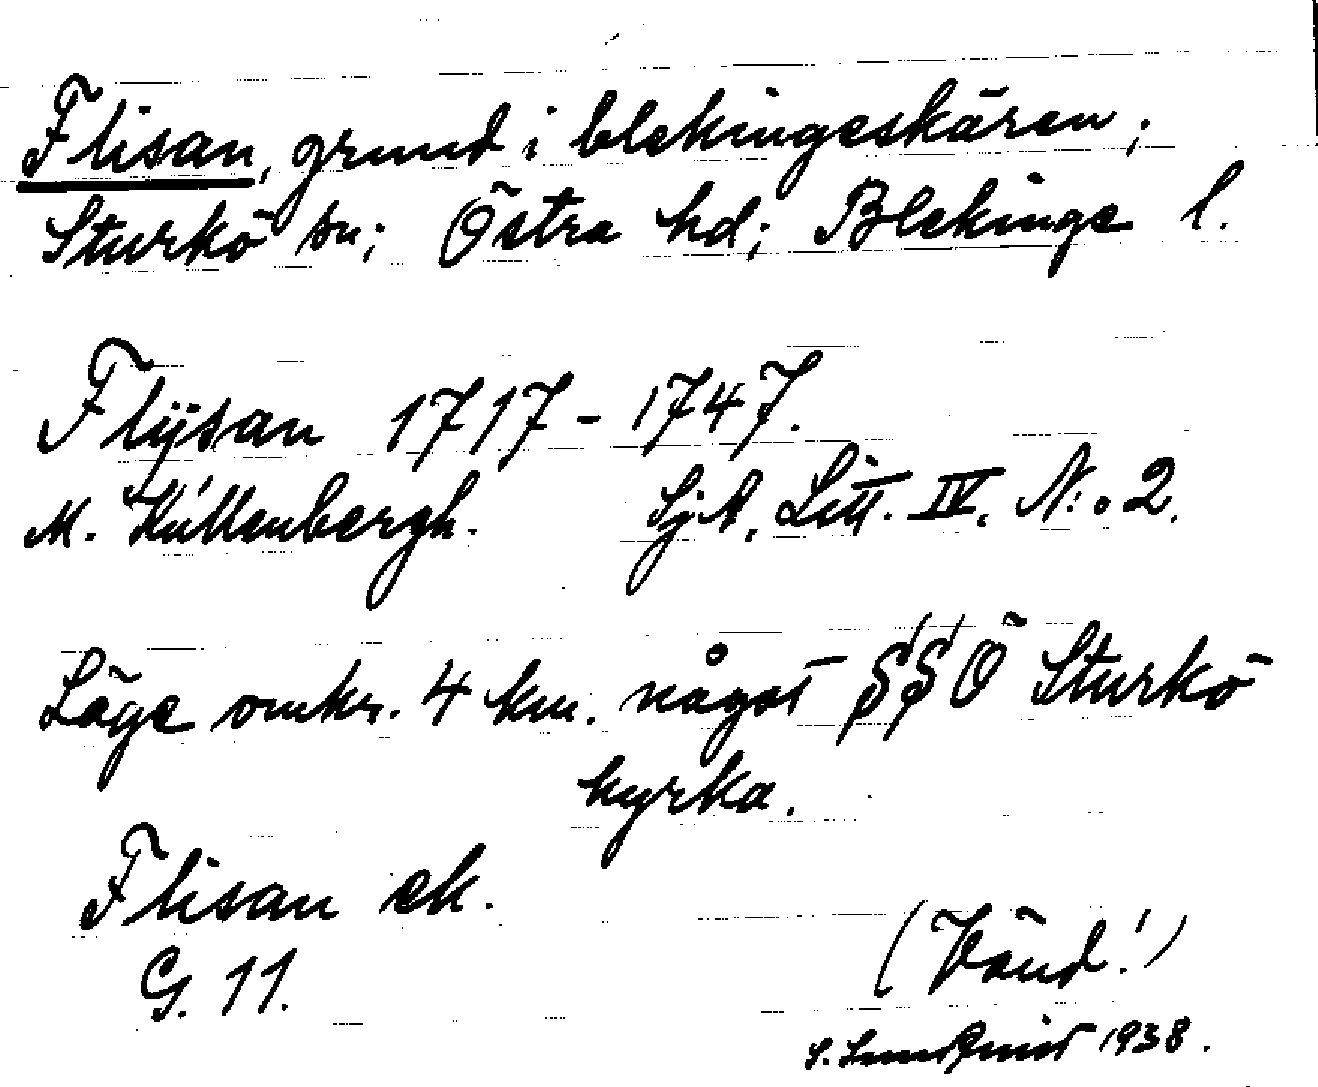 Flisan, grund i blekingeskären;
Sturkö sn; Östra hd; Blekinge l.
Flÿsan 1717-1747.
M. Küllenbergh. Sj.A. Litt. IV. N:o 2.
Läge omkr. 4 km. något SSÖ Sturkö
kyrka.
Flisan ek.
G. 11.
(Vänd!)
S. Sundqvist 1938.